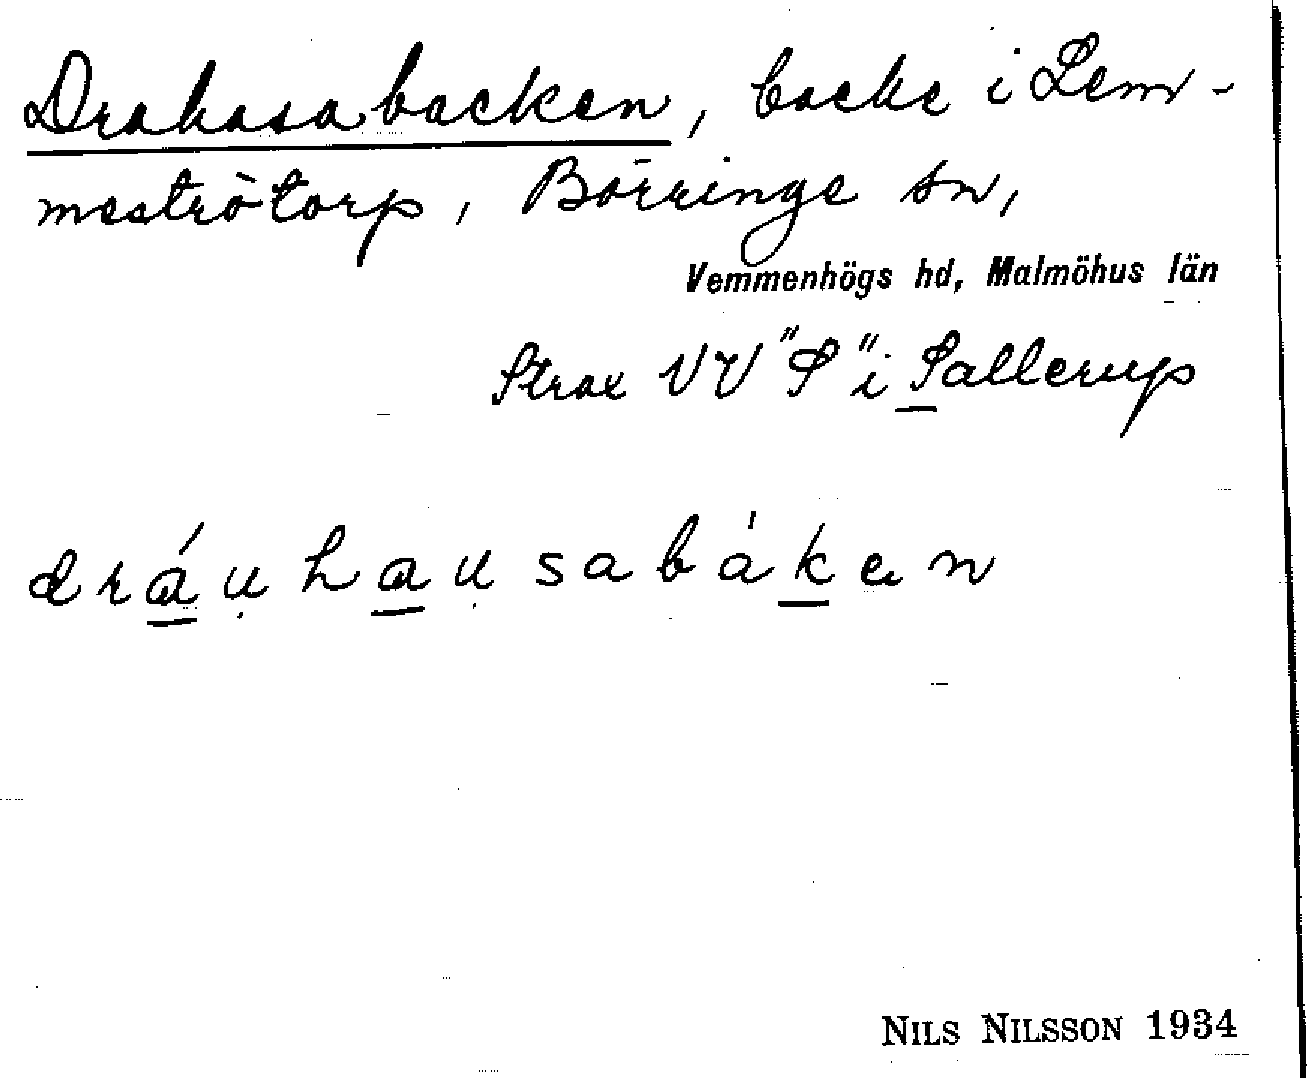 Drahasabacken, backe i Lem-
meströtorp, Börringe sn,
Vemmenhögs hd, Malmöhus län
Strax VV "S" i Sallerup
dráu̜hau̜sabáken
NILS NILSSON 1934